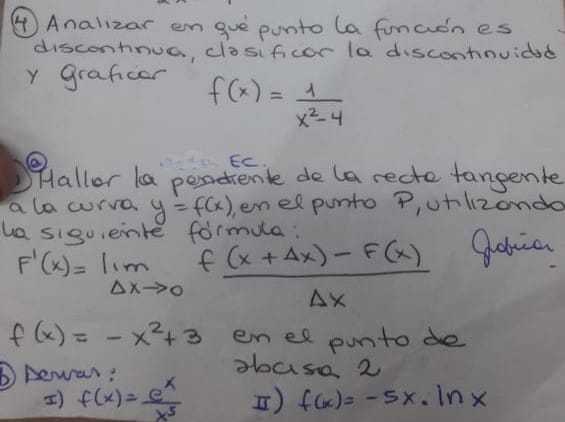 ④ Analizar en qué punto la función es
discontinua, clasificar la discontinuidad
y graficar
f(x) = 1 / x²-4
ⓐ EC.
Hallar la pendiente de la recta tangente
a la curva y = f(x), en el punto P, utilizando
la siguiente fórmula:
F'(x) = lim Δx→0 f (x + Δx) - F(x) / Δx Graficar
f(x) = -x²+3 en el punto de
abcisa 2
ⓑ Derivar:
I) f(x) = eˣ / x⁵ II) f(x) = -5x . ln x